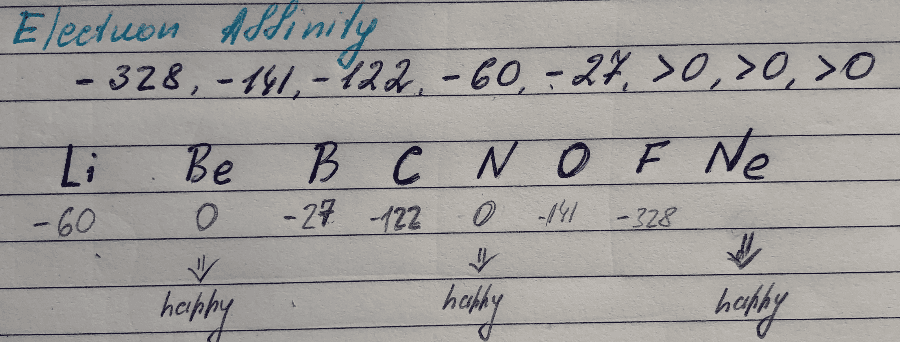 Electron Affinity
-328, -141, -122, -60, -27, >0, >0, >0
Li Be B C N O F Ne
-60 0 -27 -122 0 -141 -328
⇓ ⇓ ⇓
happy happy happy